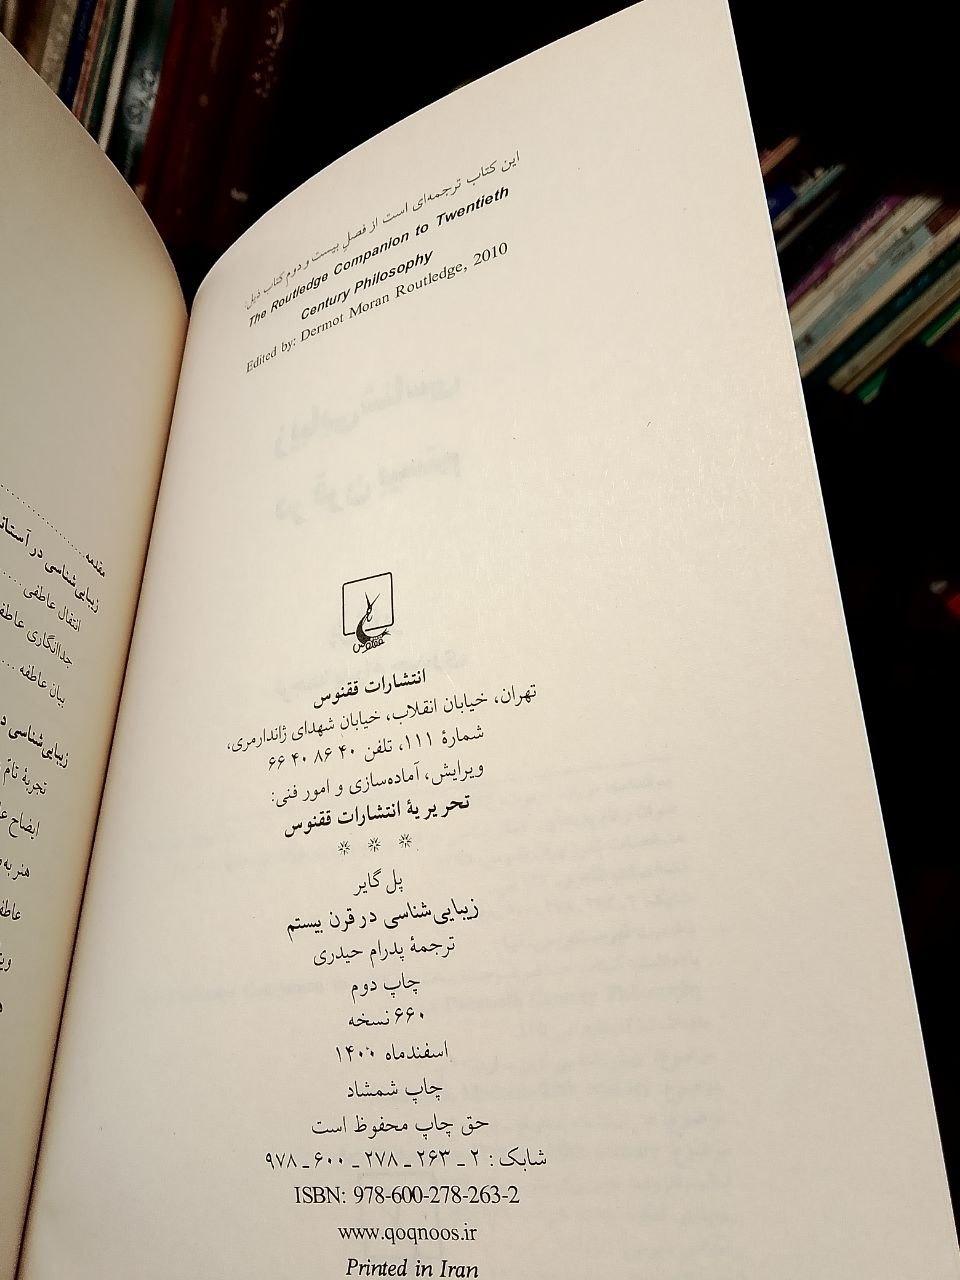 این کتاب ترجمه‌ای است از فصلِ بیست و دوم کتاب ذیل:
The Routledge Companion to Twentieth
Century Philosophy
Edited by: Dermot Moran Routledge, 2010
ققنوس
انتشارات ققنوس
تهران، خیابان انقلاب، خیابان شهدای ژاندارمری،
شمارهٔ ۱۱۱، تلفن ۴۰ ۸۶ ۴۰ ۶۶
ویرایش، آماده‌سازی و امور فنی:
تحریریهٔ انتشارات ققنوس
پل گایر
زیبایی‌شناسی در قرن بیستم
ترجمهٔ پدرام حیدری
چاپ دوم
۶۶۰ نسخه
اسفندماه ۱۴۰۰
چاپ شمشاد
حق چاپ محفوظ است
شابک: ۲ ـ ۲۶۳ ـ ۲۷۸ ـ ۶۰۰ ـ ۹۷۸
ISBN: 978-600-278-263-2
www.qoqnoos.ir
Printed in Iran
مقدمه
زیبایی‌شناسی در
انتقال عاطفی
جداانگاری
بیان عاطفه
زیبایی‌شناسی
تجربهٔ
ایضاح
هنر به